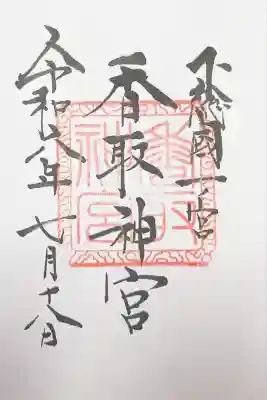 下総國一之宮
香取神宮
令和六年七月十八日